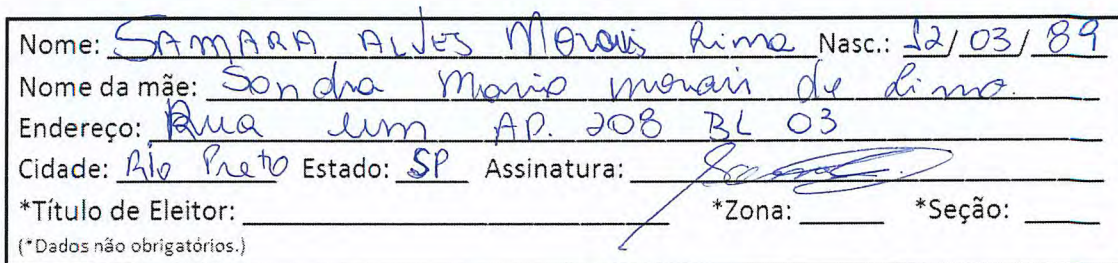 Nome: SAMARA ALVES Morais Lima Nasc.: 12/03/89
Nome da mãe: Sandra Maria morais de Lima.
Endereço: Rua um AP. 208 BL 03
Cidade: Rio Preto Estado: SP Assinatura:
*Título de Eleitor: *Zona: *Seção:
(*Dados não obrigatórios.)